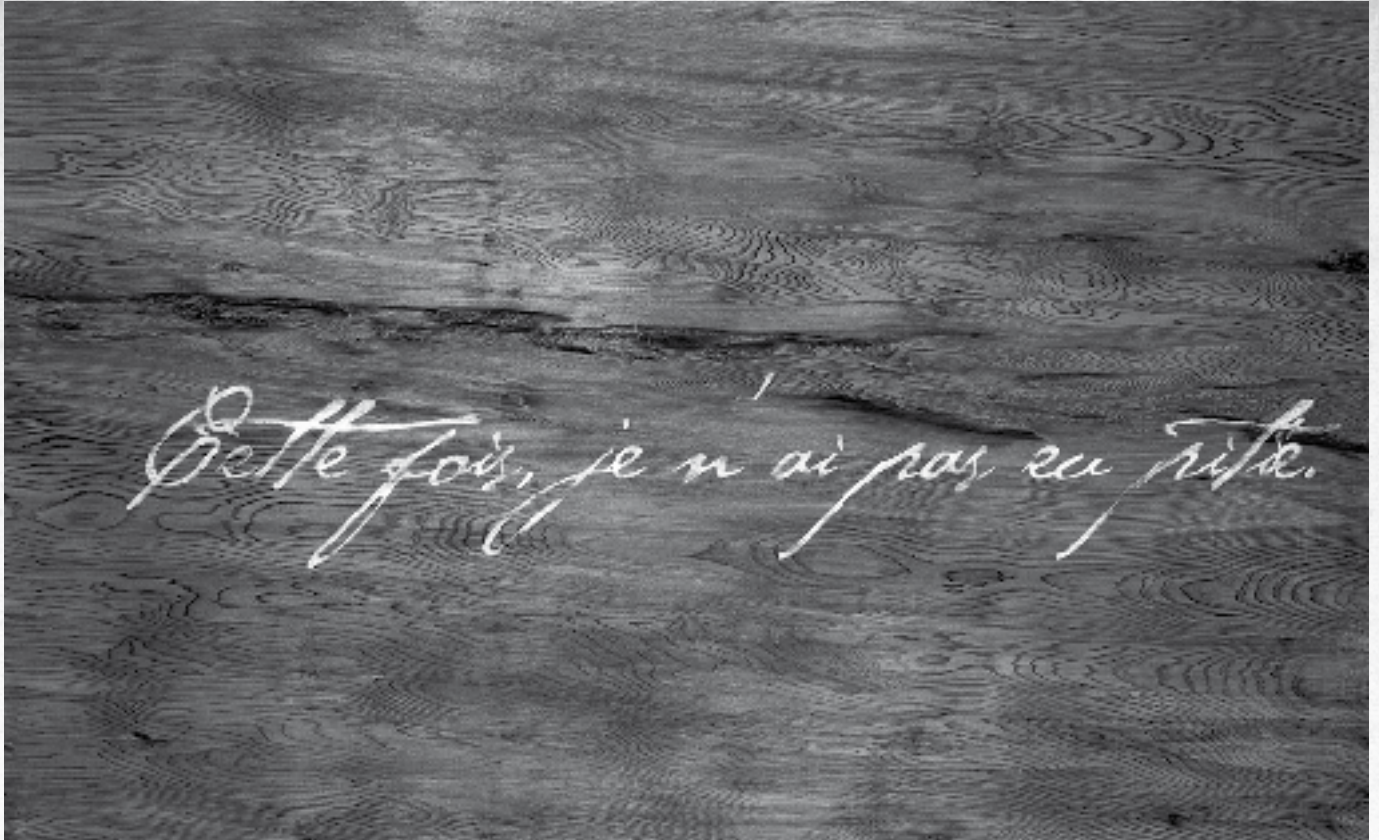 Cette fois, je n'ai pas eu pitié.